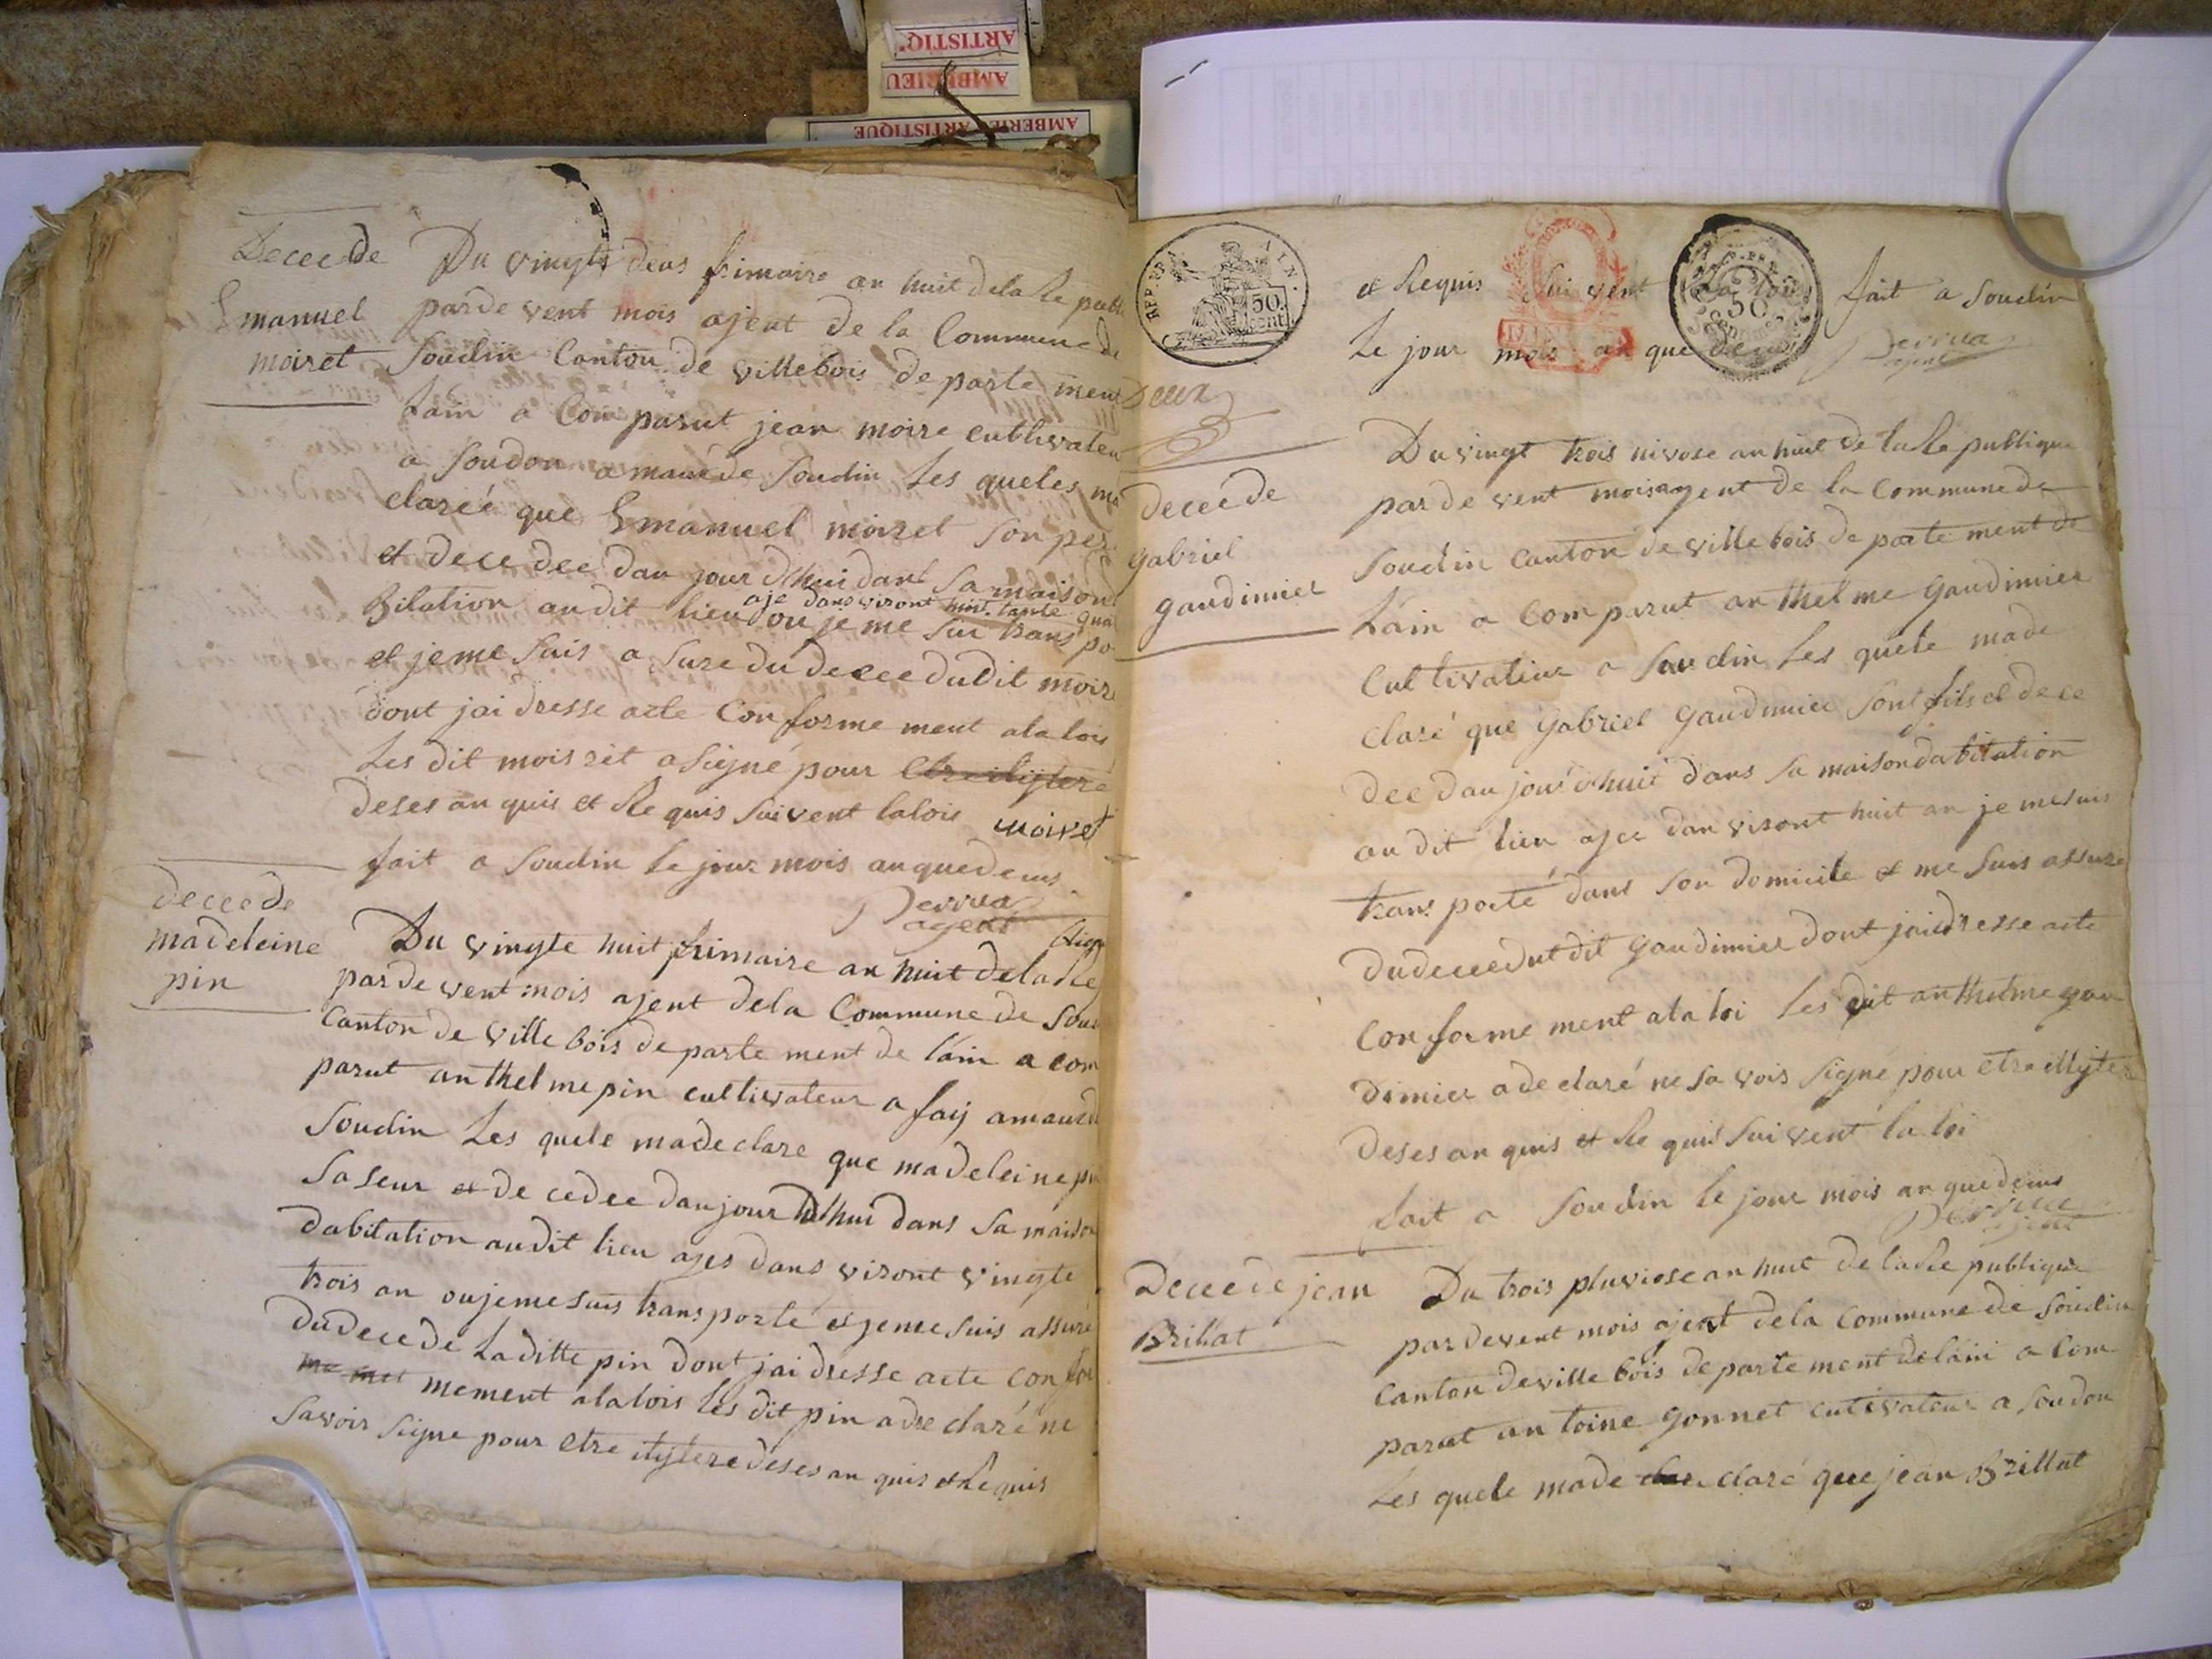 ARTISTIQ'
AMBERIEU
AMBERIEU ARTISTIQUE
Decec de
Emanuel
moiret
Du vingte deus frimaire an huit de la Re publi
par de vent mois ajent de la Commune de
Soudin Canton de villebois de parte ment
Lain a Com parut jean moire cultivateu
a Soudon a maue de Soudin Les queles ma
clareé que Emanuel moiret Son per
et dece dee dau jour dhui dant Sa maison d
Bitation audit lieu ou je me Sui trans po
aje dans viront huit tante qua
et je me Suis a Sure du decee du dit moire
dont jai dresse acte Con forme ment a la lois
Les dit mois ret a Signé pour
de ses an quis et Re quis Suivent la lois moiret
fait a Soudin le jour mois an que deus
Derrua
agent
decee de
madeleine
pin
Du vingte huit frimaire an huit de la Re
par de vent mois ajent de la Commune de Sou
Canton de ville bois de parte ment de lain a com
parut an thel me pin cultivateur a fay amaue d
Soudin Les quele made clare que madeleine pi
Sa Seur et de cedee dau jour dhui dans Sa maison
dabitation audit lieu ajes dans viront vingte
trois an ou je me Suis trans porté et je me Suis assuré
du dece de La ditte pin dont jai dresse acte con for
me met mement a la lois les dit pin a de claré ne
Savoir Signe pour etre ilytere de ses an quis et Re quis
REP. FRA
50.
cent.
50
et Requis Sui vent la loi fait a Soudin
Le jour mois an que deus Derrua
agent
deux
decee de
gabriel
gaudimier
Du vingt trois nivose an huit de la Re publique
par de vent mois agent de la Commune de
Soudin Canton de ville bois de parte ment de
Lain a Com parut an thel me Gaudimier
Cultivateur a Soudin Les quele made
claré que Gabriel Gaudimier Sont fils et de ce
dee dau jour dhuit dans Sa maison dabitation
au dit lieu ajee dan viront huit an je me suis
trans porté dans Son domicile et me Suis assure
du decee dut dit gaudimier dont jai dresse acte
Con for me ment a la loi les dit an thelme gau
dimier a de claré ne Sa vois Signé pour etre illyter
de ses an quis et Re quis Sui vent la loi
fait a Soudin le jour mois an que deus
Derrua
ajent
Decee de jean
Brillat
Du trois pluviose an huit de la Re publique
par de vent mois ajent de la Commune de Soudin
Canton de ville bois de parte ment de lain a Com
parut an toine gonnet cutivateur a Soudon
Les quele made claré que jean Brillat